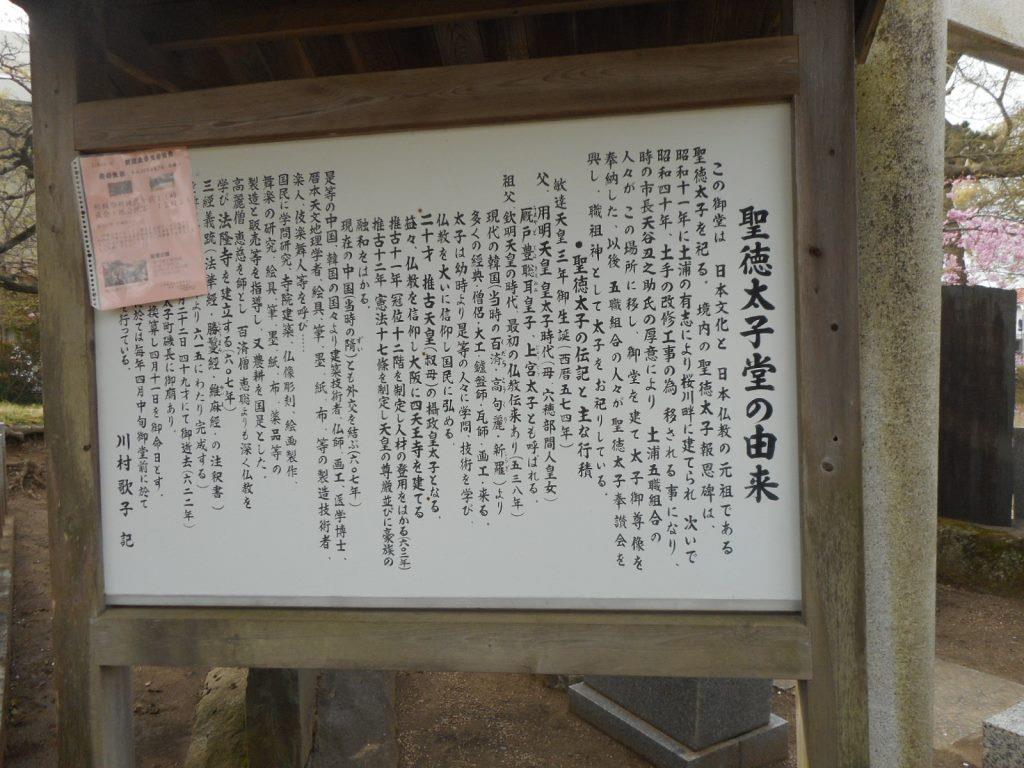 聖徳太子堂の由来
この御堂は 日本文化と 日本仏教の元祖である
聖徳太子を祀る。 境内の聖徳太子報恩碑は、
昭和十一年に土浦の有志により桜川畔に建てられ 次いで
昭和四十年、土手の改修工事の為、移される事になり、
時の市長天谷丑之助氏の厚意により 土浦五職組合の
人々が この場所に移し、御堂を建て太子御尊像を
奉納した。以後 五職組合の人々が聖徳太子奉讃会を
興し、職祖神として太子をお祀りしている。
・聖徳太子の伝記と主な行積
敏達天皇三年御生誕(西暦五七四年)
父、用明天皇 皇太子時代(母・六穂部間人皇女)
厩戸豊聡耳皇子、上宮太子とも呼ばれる。
祖父 欽明天皇の時代、最初の仏教伝来あり(五三八年)
現代の韓国(当時の百済・高句麗・新羅)より
多くの経典・僧侶・大工・鑪盤師・瓦師・画工・来る。
太子は幼時より是等の人々に学問・技術を学び、
仏教を大いに信仰し国民に弘める。
二十才 推古天皇(叔母)の摂政皇太子となる。
益々、仏教を信仰し大阪に四天王寺を建てる
推古十一年 冠位十二階を制定し人材の登用をはかる(六〇三年)
推古十二年 憲法十七條を制定し天皇の尊厳並びに豪族の
融和をはかる。
現在の中国(当時の隋)とも外交を結ぶ(六〇七年)
是等の中国、韓国の国々より建築技術者、仏師、画工、医学博士、
暦本天文地理学者、絵具、筆、墨、紙、布、等の製造技術者、
楽人、伎楽舞人等を呼び…
国民に学問研究、寺院建築、仏像彫刻、絵画製作、
舞楽の研究、絵具、筆、墨、紙、布、薬品等の
製造と販売等を指導し、又農耕を国是とした。
高麗僧 恵慈を師とし 百済僧 恵聡よりも深く仏教を
学び 法隆寺を建立する(六〇七年)
三經義疏(法華經・勝鬘經・維麻經・の注釈書)
より六一五にわたり完成する)
月二十二日 四十九才にて御逝去(六二二年)
子町磯長に御廟あり。
換算し四月十一日を、御命日とす。
於ては毎年四月中旬御堂前に於て
行っている。
川村歌子 記